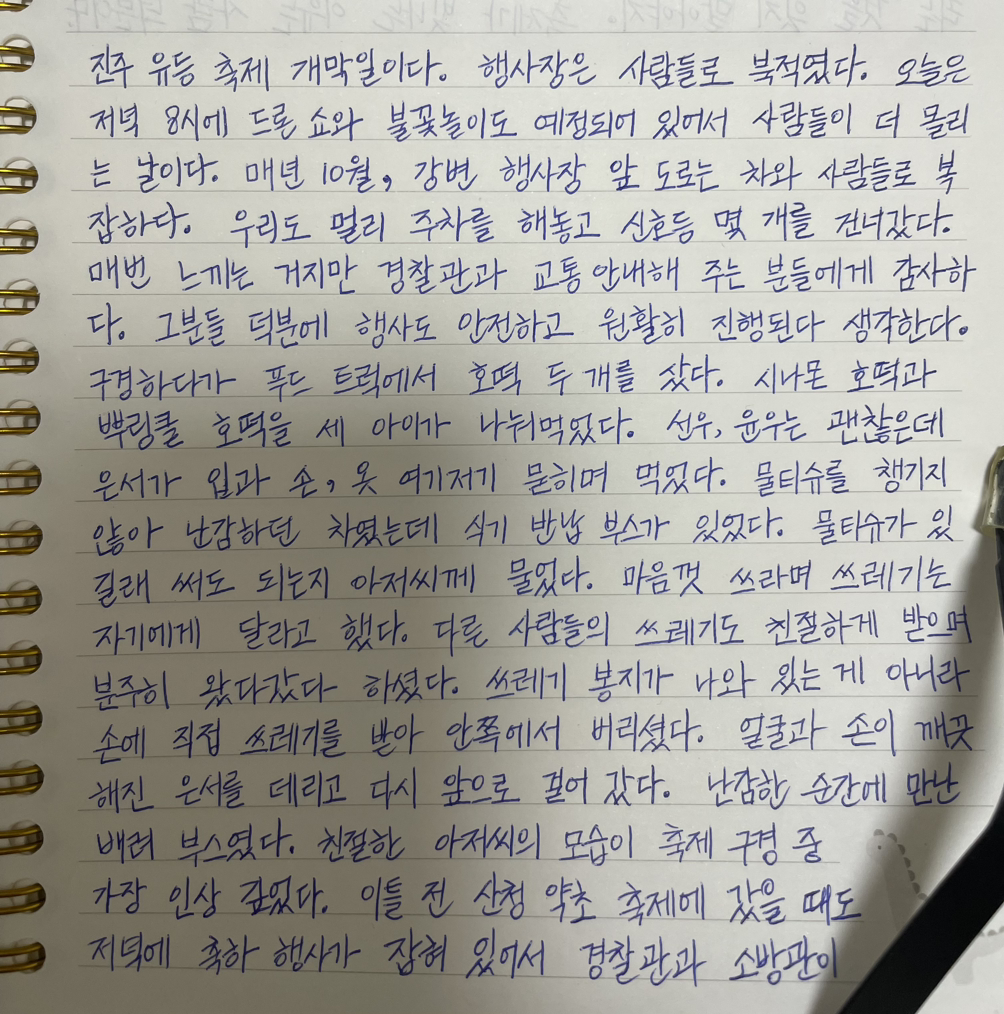 진주 유등 축제 개막일이다. 행사장은 사람들로 북적였다. 오늘은
저녁 8시에 드론쇼와 불꽃놀이도 예정되어 있어서 사람들이 더 몰리
는 날이다. 매년 10월, 강변 행사장 앞 도로는 차와 사람들로 복
잡하다. 우리도 멀리 주차를 해놓고 신호등 몇 개를 건너갔다.
매번 느끼는 거지만 경찰관과 교통안내해 주는 분들에게 감사하
다. 그분들 덕분에 행사도 안전하고 원활히 진행된다 생각한다.
구경하다가 푸드 트럭에서 호떡 두 개를 샀다. 시나몬 호떡과
뿌링클 호떡을 세 아이가 나눠먹었다. 선우, 윤우는 괜찮은데
은서가 입과 손, 옷 여기저기 묻히며 먹었다. 물티슈를 챙기지
않아 난감하던 차였는데 식기 반납 부스가 있었다. 물티슈가 있
길래 써도 되는지 아저씨께 물었다. 마음껏 쓰라며 쓰레기는
자기에게 달라고 했다. 다른 사람들의 쓰레기도 친절하게 받으며
분주히 왔다갔다 하셨다. 쓰레기 봉지가 나와 있는 게 아니라
손에 직접 쓰레기를 받아 안쪽에서 버리셨다. 얼굴과 손이 깨끗
해진 은서를 데리고 다시 앞으로 걸어 갔다. 난감한 순간에 만난
배려 부스였다. 친절한 아저씨의 모습이 축제 구경 중
가장 인상 깊었다. 이틀 전 산청 약초 축제에 갔을 때도
저녁에 축하 행사가 잡혀 있어서 경찰관과 소방관이